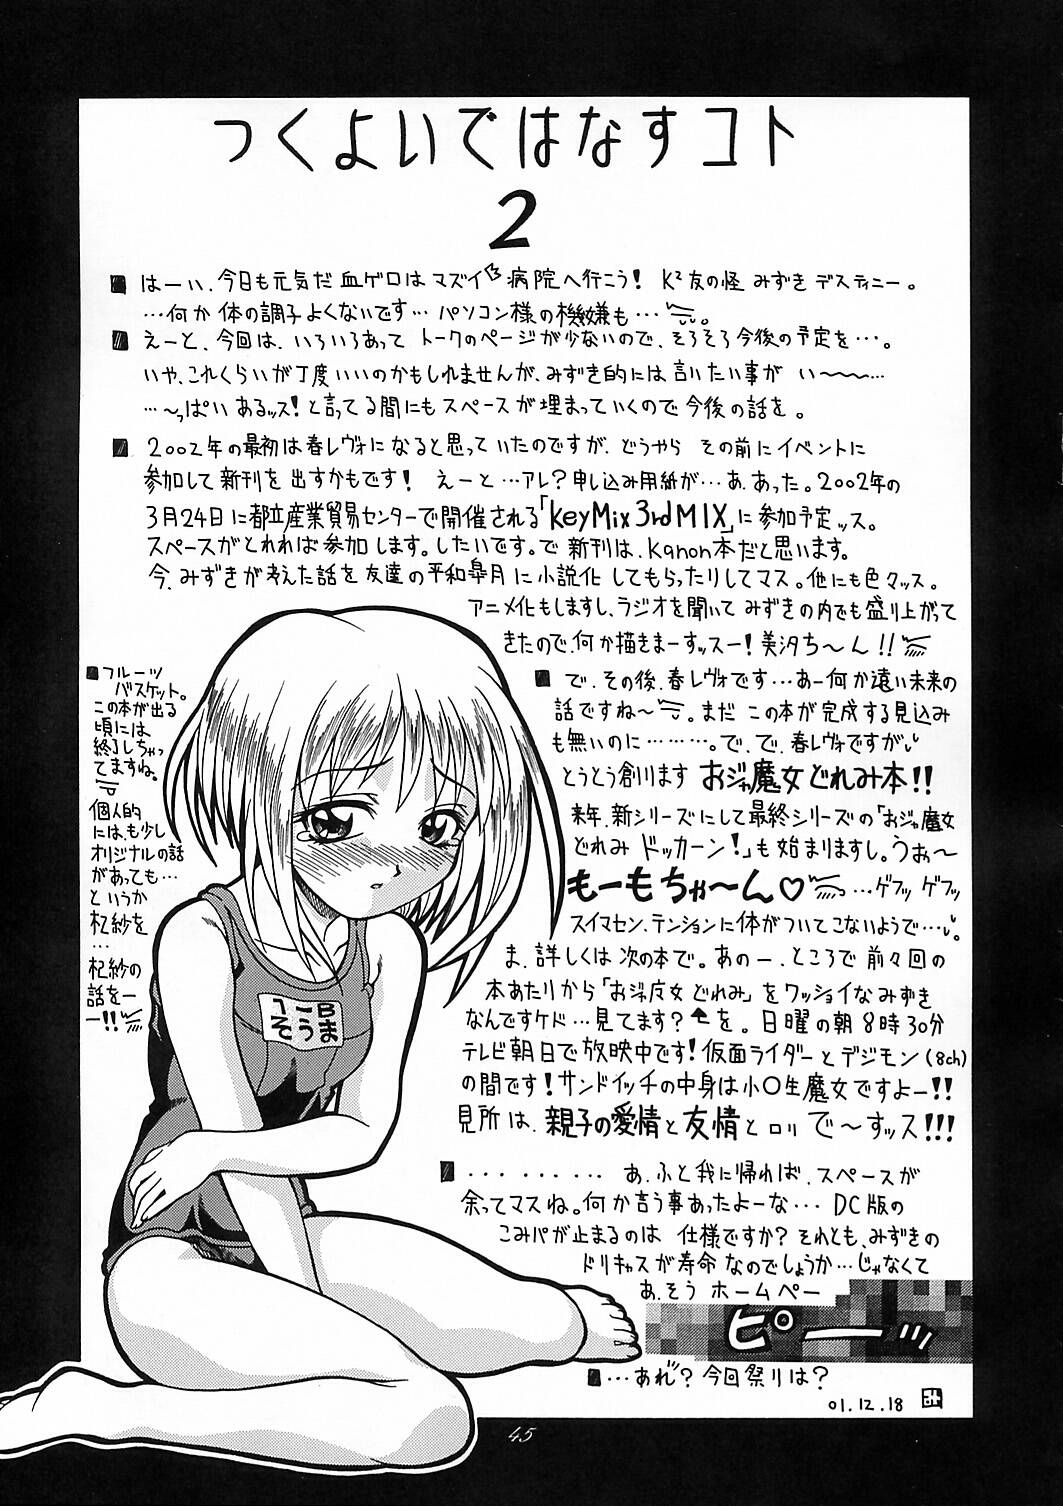 つくよいではなすコト
2
はーい、今日も元気だ血ゲロはマズイ 病院へ行こう! K²友の怪 みずき デスティニー。
…何か体の調子よくないです… パソコン様の機嫌も…。
えーと、今回は、いろいろあって トークのページが少ないので、そろそろ今後の予定を…。
いや、これくらいが丁度いいのかもしれませんが、みずき的には言いたい事が い〜〜〜…
…〜っぱい あるッス! と言ってる間にもスペースが埋まっていくので今後の話を。
2002年の最初は春レヴォになると思っていたのですが、どうやら その前にイベントに
参加して新刊を出すかもです! えーと…アレ?申し込み用紙が…あ、あった。2002年の
3月24日に都立産業貿易センターで開催される「KeyMix 3rd MIX」に参加予定ッス。
スペースがとれれば参加します。したいです。で 新刊は、Kanon本だと思います。
今、みずきが考えた話を友達の平和皐月に小説化してもらったりしてマス。他にも色々ッス。
アニメ化もしますし、ラジオを聞いてみずきの内でも盛り上がって
きたので、何か描きまーすッスー! 美汐ち〜ん!!
フルーツ
バスケット。
この本が出る
頃には
終了しちゃっ
てますね。
個人的
には、も少し
オリジナルの話
があっても…
というか
杞紗を
…
杞紗の
話を
ー!!
で、その後、春レヴォです…あー何か遠い未来の
話ですね〜。まだ この本が完成する見込み
も無いのに………。で、で、春レヴォですが、
とうとう創ります おジャ魔女どれみ本!!
来年、新シリーズにして最終シリーズの「おジャ魔女
どれみ ドッカーン!」も始まりますし。うぉ〜
もーもちゃ〜ん♡ …ゲフッ ゲフッ
スイマセン、テンションに体がついてこないようで…。
ま、詳しくは次の本で。あのー、ところで前々回の
本あたりから「おジャ魔女どれみ」をワッショイなみずき
なんですケド…見てます?↑を。日曜の朝8時30分
テレビ朝日で放映中です! 仮面ライダーとデジモン(8ch)
の間です! サンドイッチの中身は小〇生魔女ですよー!!
見所は、親子の愛情と友情とロリ で〜すッス!!!
1 B
こま
そう
......... あ、ふと我に帰れば、スペースが
余ってマスね。何か言う事あったよーな… DC版の
こみパが止まるのは 仕様ですか? それとも、みずきの
ドリキャスが寿命なのでしょうか…じゃなくて
あ、そう ホームペー
ピーーッ
…あれ? 今回祭りは?
01.12.18 み
45